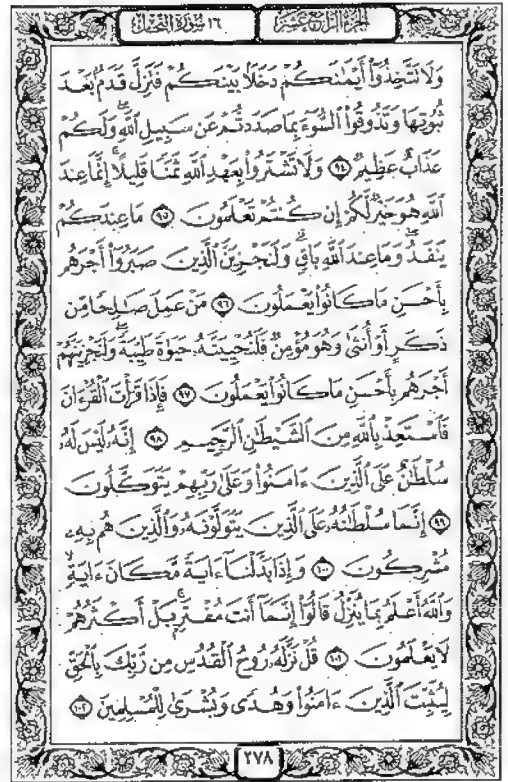 الجزء الرابع عشر ١٦ سورة النحل
وَلَا تَتَّخِذُوٓا۟ أَيْمَـٰنَكُمْ دَخَلًۢا بَيْنَكُمْ فَتَزِلَّ قَدَمٌۢ بَعْدَ
ثُبُوتِهَا وَتَذُوقُوا۟ ٱلسُّوٓءَ بِمَا صَدَدتُّمْ عَن سَبِيلِ ٱللَّهِ ۖ وَلَكُمْ
عَذَابٌ عَظِيمٌ ۝٩٤ وَلَا تَشْتَرُوا۟ بِعَهْدِ ٱللَّهِ ثَمَنًا قَلِيلًا ۚ إِنَّمَا عِندَ
ٱللَّهِ هُوَ خَيْرٌ لَّكُمْ إِن كُنتُمْ تَعْلَمُونَ ۝٩٥ مَا عِندَكُمْ
يَنفَدُ ۖ وَمَا عِندَ ٱللَّهِ بَاقٍ ۗ وَلَنَجْزِيَنَّ ٱلَّذِينَ صَبَرُوٓا۟ أَجْرَهُم
بِأَحْسَنِ مَا كَانُوا۟ يَعْمَلُونَ ۝٩٦ مَنْ عَمِلَ صَـٰلِحًا مِّن
ذَكَرٍ أَوْ أُنثَىٰ وَهُوَ مُؤْمِنٌ فَلَنُحْيِيَنَّهُۥ حَيَوٰةً طَيِّبَةً ۖ وَلَنَجْزِيَنَّهُمْ
أَجْرَهُم بِأَحْسَنِ مَا كَانُوا۟ يَعْمَلُونَ ۝٩٧ فَإِذَا قَرَأْتَ ٱلْقُرْءَانَ
فَٱسْتَعِذْ بِٱللَّهِ مِنَ ٱلشَّيْطَـٰنِ ٱلرَّجِيمِ ۝٩٨ إِنَّهُۥ لَيْسَ لَهُۥ
سُلْطَـٰنٌ عَلَى ٱلَّذِينَ ءَامَنُوا۟ وَعَلَىٰ رَبِّهِمْ يَتَوَكَّلُونَ
۝٩٩ إِنَّمَا سُلْطَـٰنُهُۥ عَلَى ٱلَّذِينَ يَتَوَلَّوْنَهُۥ وَٱلَّذِينَ هُم بِهِۦ
مُشْرِكُونَ ۝١٠٠ وَإِذَا بَدَّلْنَآ ءَايَةً مَّكَانَ ءَايَةٍ ۙ
وَٱللَّهُ أَعْلَمُ بِمَا يُنَزِّلُ قَالُوٓا۟ إِنَّمَآ أَنتَ مُفْتَرٍۭ ۚ بَلْ أَكْثَرُهُمْ
لَا يَعْلَمُونَ ۝١٠١ قُلْ نَزَّلَهُۥ رُوحُ ٱلْقُدُسِ مِن رَّبِّكَ بِٱلْحَقِّ
لِيُثَبِّتَ ٱلَّذِينَ ءَامَنُوا۟ وَهُدًى وَبُشْرَىٰ لِلْمُسْلِمِينَ ۝١٠٢
٢٧٨